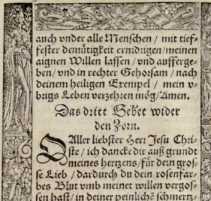 auch vnder alle Menschen / mit tief-
fester demütigkeit ernidrigen / meinen
aignen Willen lassen / vnd auffgege-
ben / vnd in rechter Gehorsam / nach
deinem heiligen Exempel / mein v-
brigs Leben verzehren mög / Amen.
Das dritt Gebet wider
den Zorn.
O Aller liebster Herr Jesu Chri-
ste / ich dancke dir auß grundt
meines hertzens / für dein gros-
se Lieb / dardurch du dein rosenfar-
bes Blut vmb meinet willen vergos-
sen hast / in deiner peinliche schmertz-